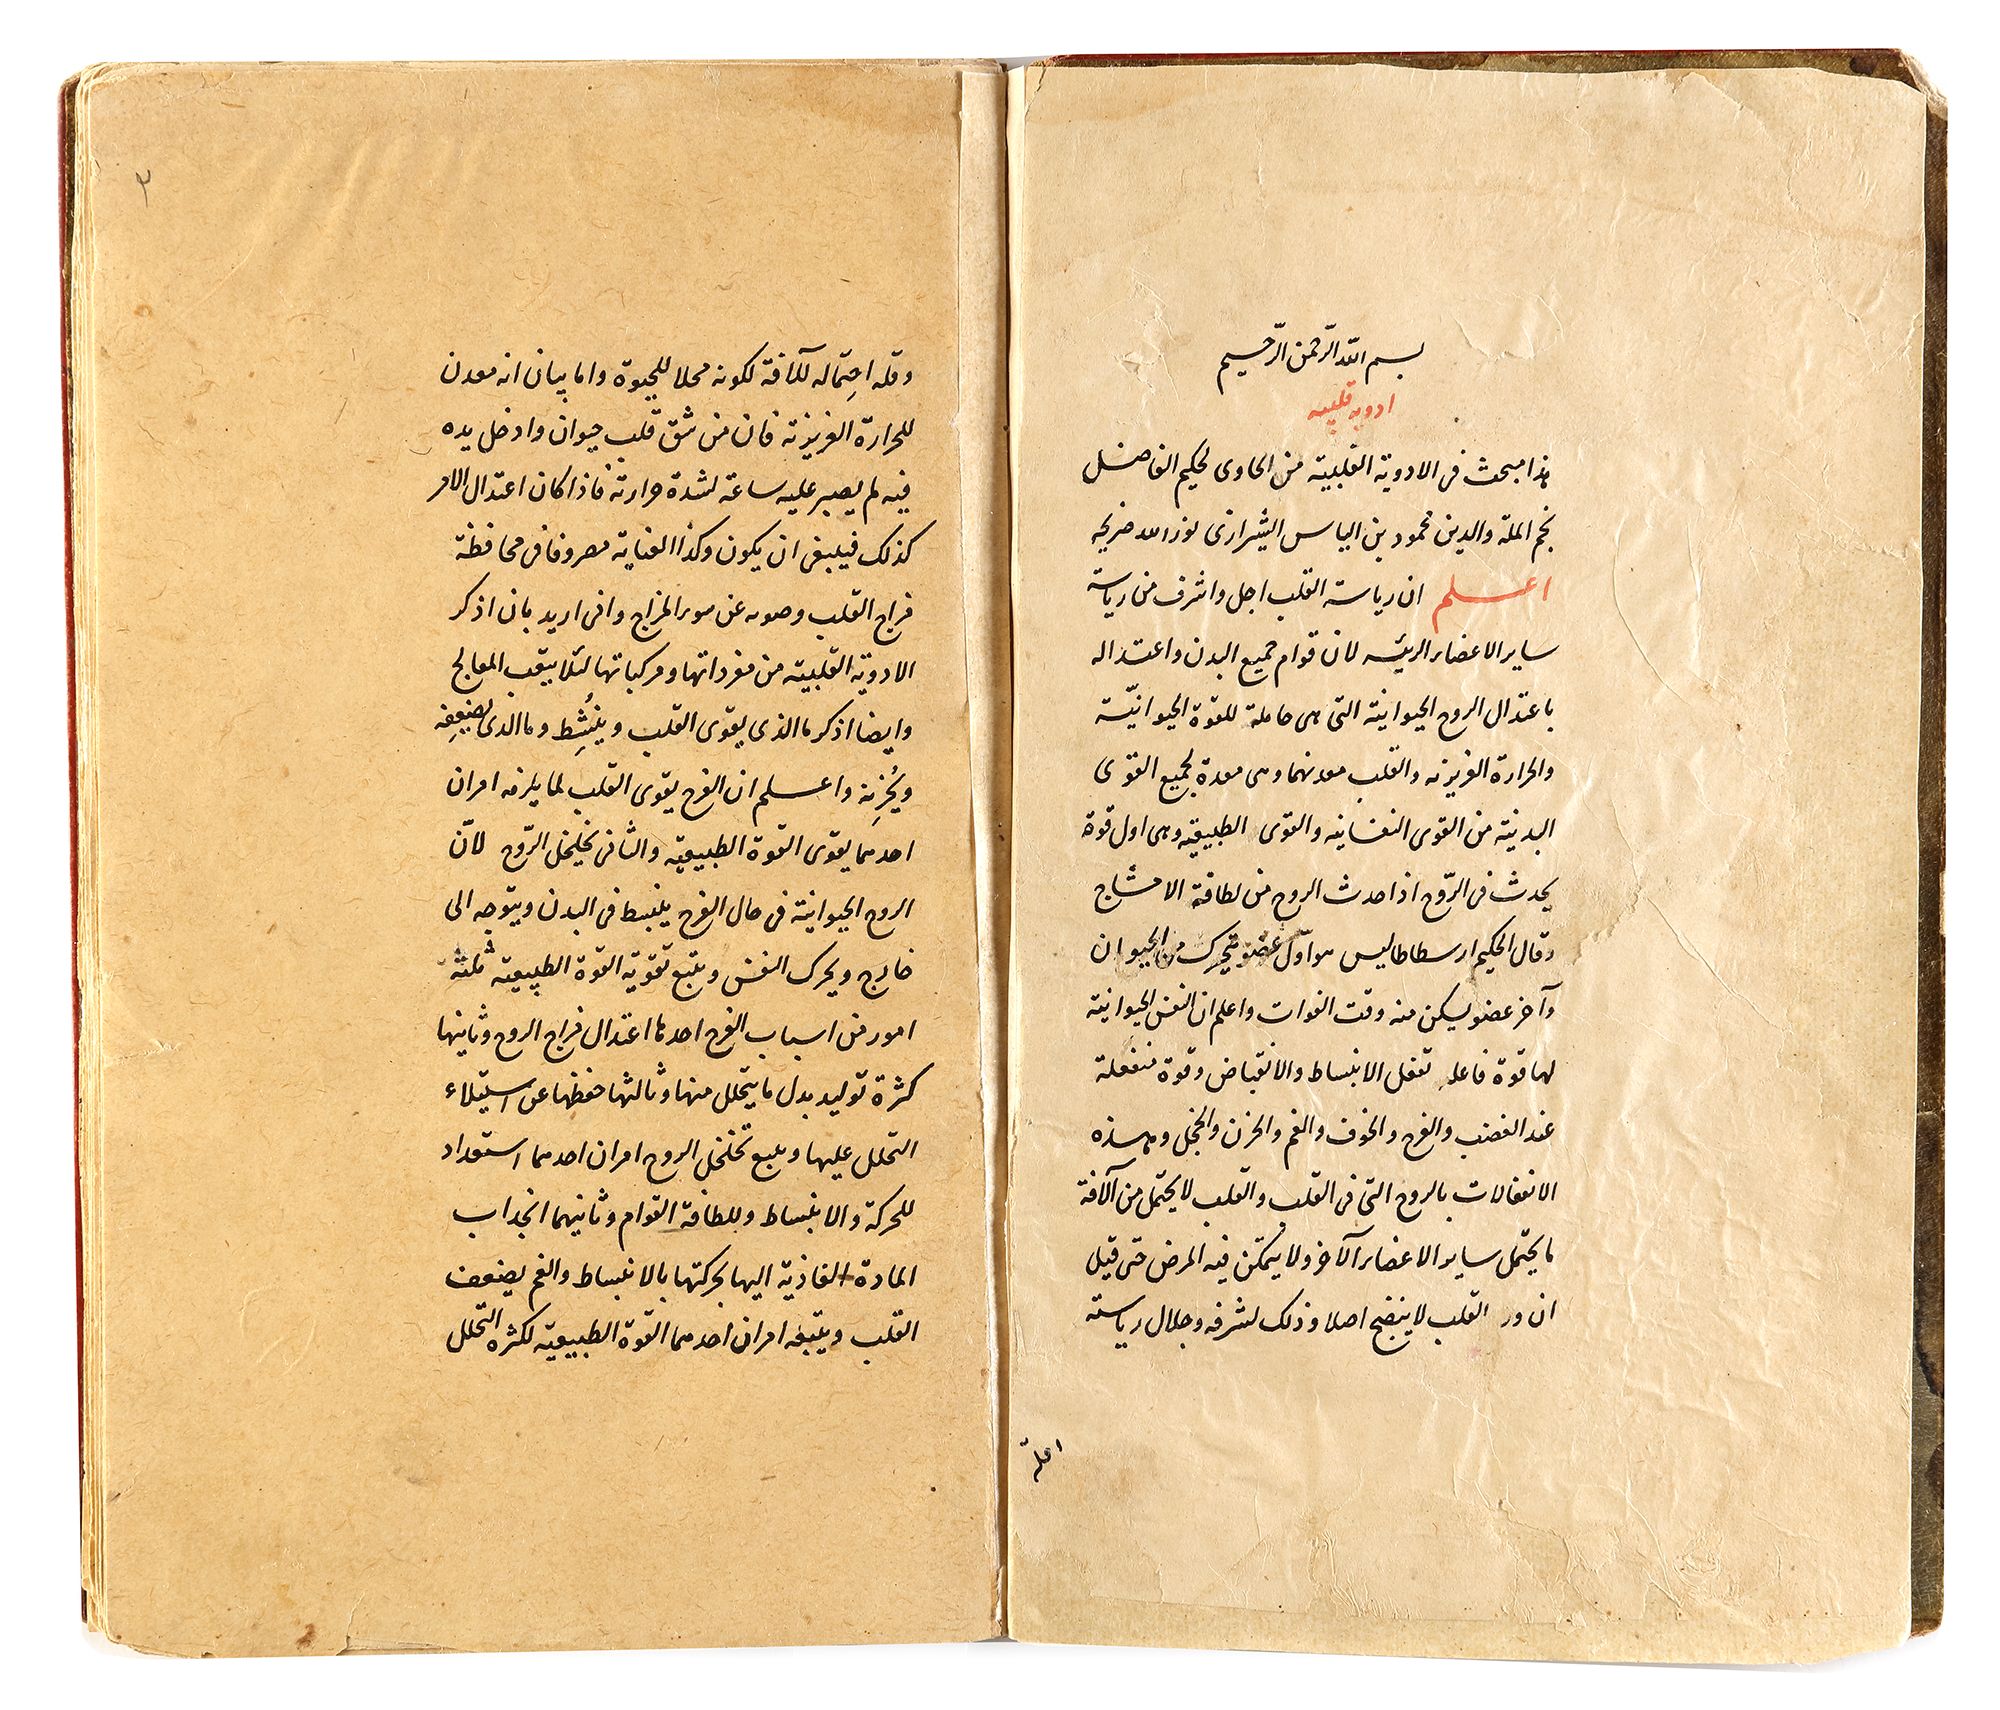 بسم الله الرّحمن الرّحيم
ادويه قلبيه
هذا مبحث فى الادوية القلبية من الحاوى لحكيم الفاضل
نجم الملة والدين محمود بن الياس الشيرازى نور الله ضريحه
اعلم ان رياسة القلب اجل واشرف من رياسة
ساير الاعضاء الرئيسه لان قوام جميع البدن واعتداله
باعتدال الروح الحيوانية التى هى حاملة للقوة الحيوانيّة
والحرارة الغريزيه والقلب معدنهما وهى معدة لجميع القوى
البدنية من القوى النفسانيه والقوى الطبيعية وهى اول قوة
يحدث فى الرّوح اذا حدث الروح من لطافة الامشاج
وقال الحكيم ارسطاطاليس هو اوّل عضو يتحرك من الحيوان
وآخر عضو يسكن منه وقت الفوات واعلم ان النفس الحيوانية
لها قوة فاعله تفعل الانبساط والانقباض وقوة منفعلة
عند الغضب والفرح والخوف والغم والحزن والخجل وهذه
الانفعالات بالروح التى فى القلب والقلب لا يحتمل من آلافة
ما يحتمل ساير الاعضاء آلاخر ولا يتمكن فيه المرض حتى قيل
ان ور القلب لا ينضج اصلا وذلك لشرفه وجلال رياسته
٢
وقله احتماله للآفة لكونه محلا للحيوة واما بيان انه معدن
للحرارة الغريزية فان من شق قلب حيوان وادخل يده
فيه لم يصبر عليه ساعة لشدة حرارته فاذا كان اعتدال الامر
كذلك فينبغى ان يكون وكذا العناية مصروفا فى محافظة
مزاج القلب وصونه عن سوء المزاج وانى اريد بان اذكر
الادوية القلبية من مفرداتها ومركباتها لئلا يتعب المعالج
وايضا اذكر ما الذى يقوى القلب وينُشِط وما الذى يضعِفه
ويُحزِنه واعلم ان الفرح يقوى القلب لما يلزمه امران
احدهما يقوى القوة الطبيعيه والثانى تخلخل الرّوح لانّ
الروح الحيوانية فى حال الفرح ينبسط فى البدن ويتوجه الى
خارج ويحرك النفس ويتبع تقوية القوة الطبيعيه ثلثة
امور من اسباب الفرح احدها اعتدال مزاج الروح وثانيها
كثرة توليد بدل ما يتحلل منها وثالثها حفظها عن استيلاء
التحلل عليها ويتبع تخلخل الروح امران احدهما استعداد
للحركة والانبساط وللطافة القوام وثانيهما انجذاب
المادة الغاذية اليها بحركتها بالانبساط والغم يضعف
القلب ويتبعه امران احدهما القوة الطبيعيه لكثره التحلل